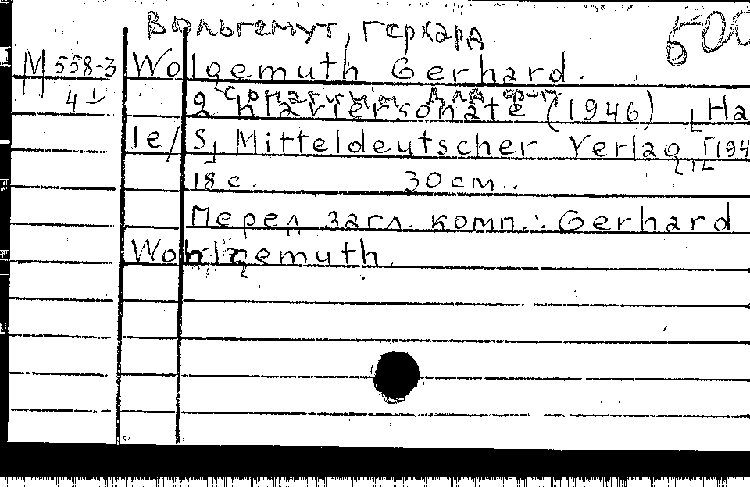 Вольгемут, Герхард
600
М 558-3 Wolgemuth Gerhard.
4 2. Klaviersonate (1946) [Ha
le/S] Mitteldeutscher Verlag [194
18 с. 30 см.
Перед загл. комп.: Gerhard
Wohlgemuth.